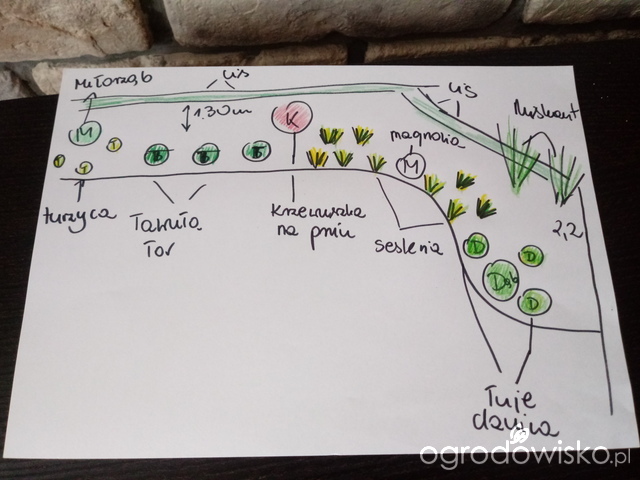 Miłorząb
cis
cis
Miskant
1.30m
K
M
magnolia
M
T
T
T
T
T
T
turzyca
Tawuła
Tor
Krzewuszka
na pniu
seslenia
2,2
D
D
Dąb
D
Tuje
danica
ogrodowisko.pl